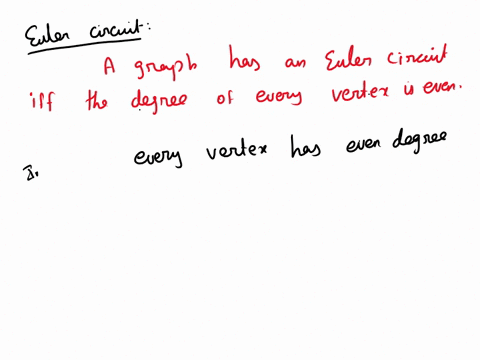 Euler circuit:
A graph has an Euler circuit
iff the degree of every vertex is even.
every vertex has even degree